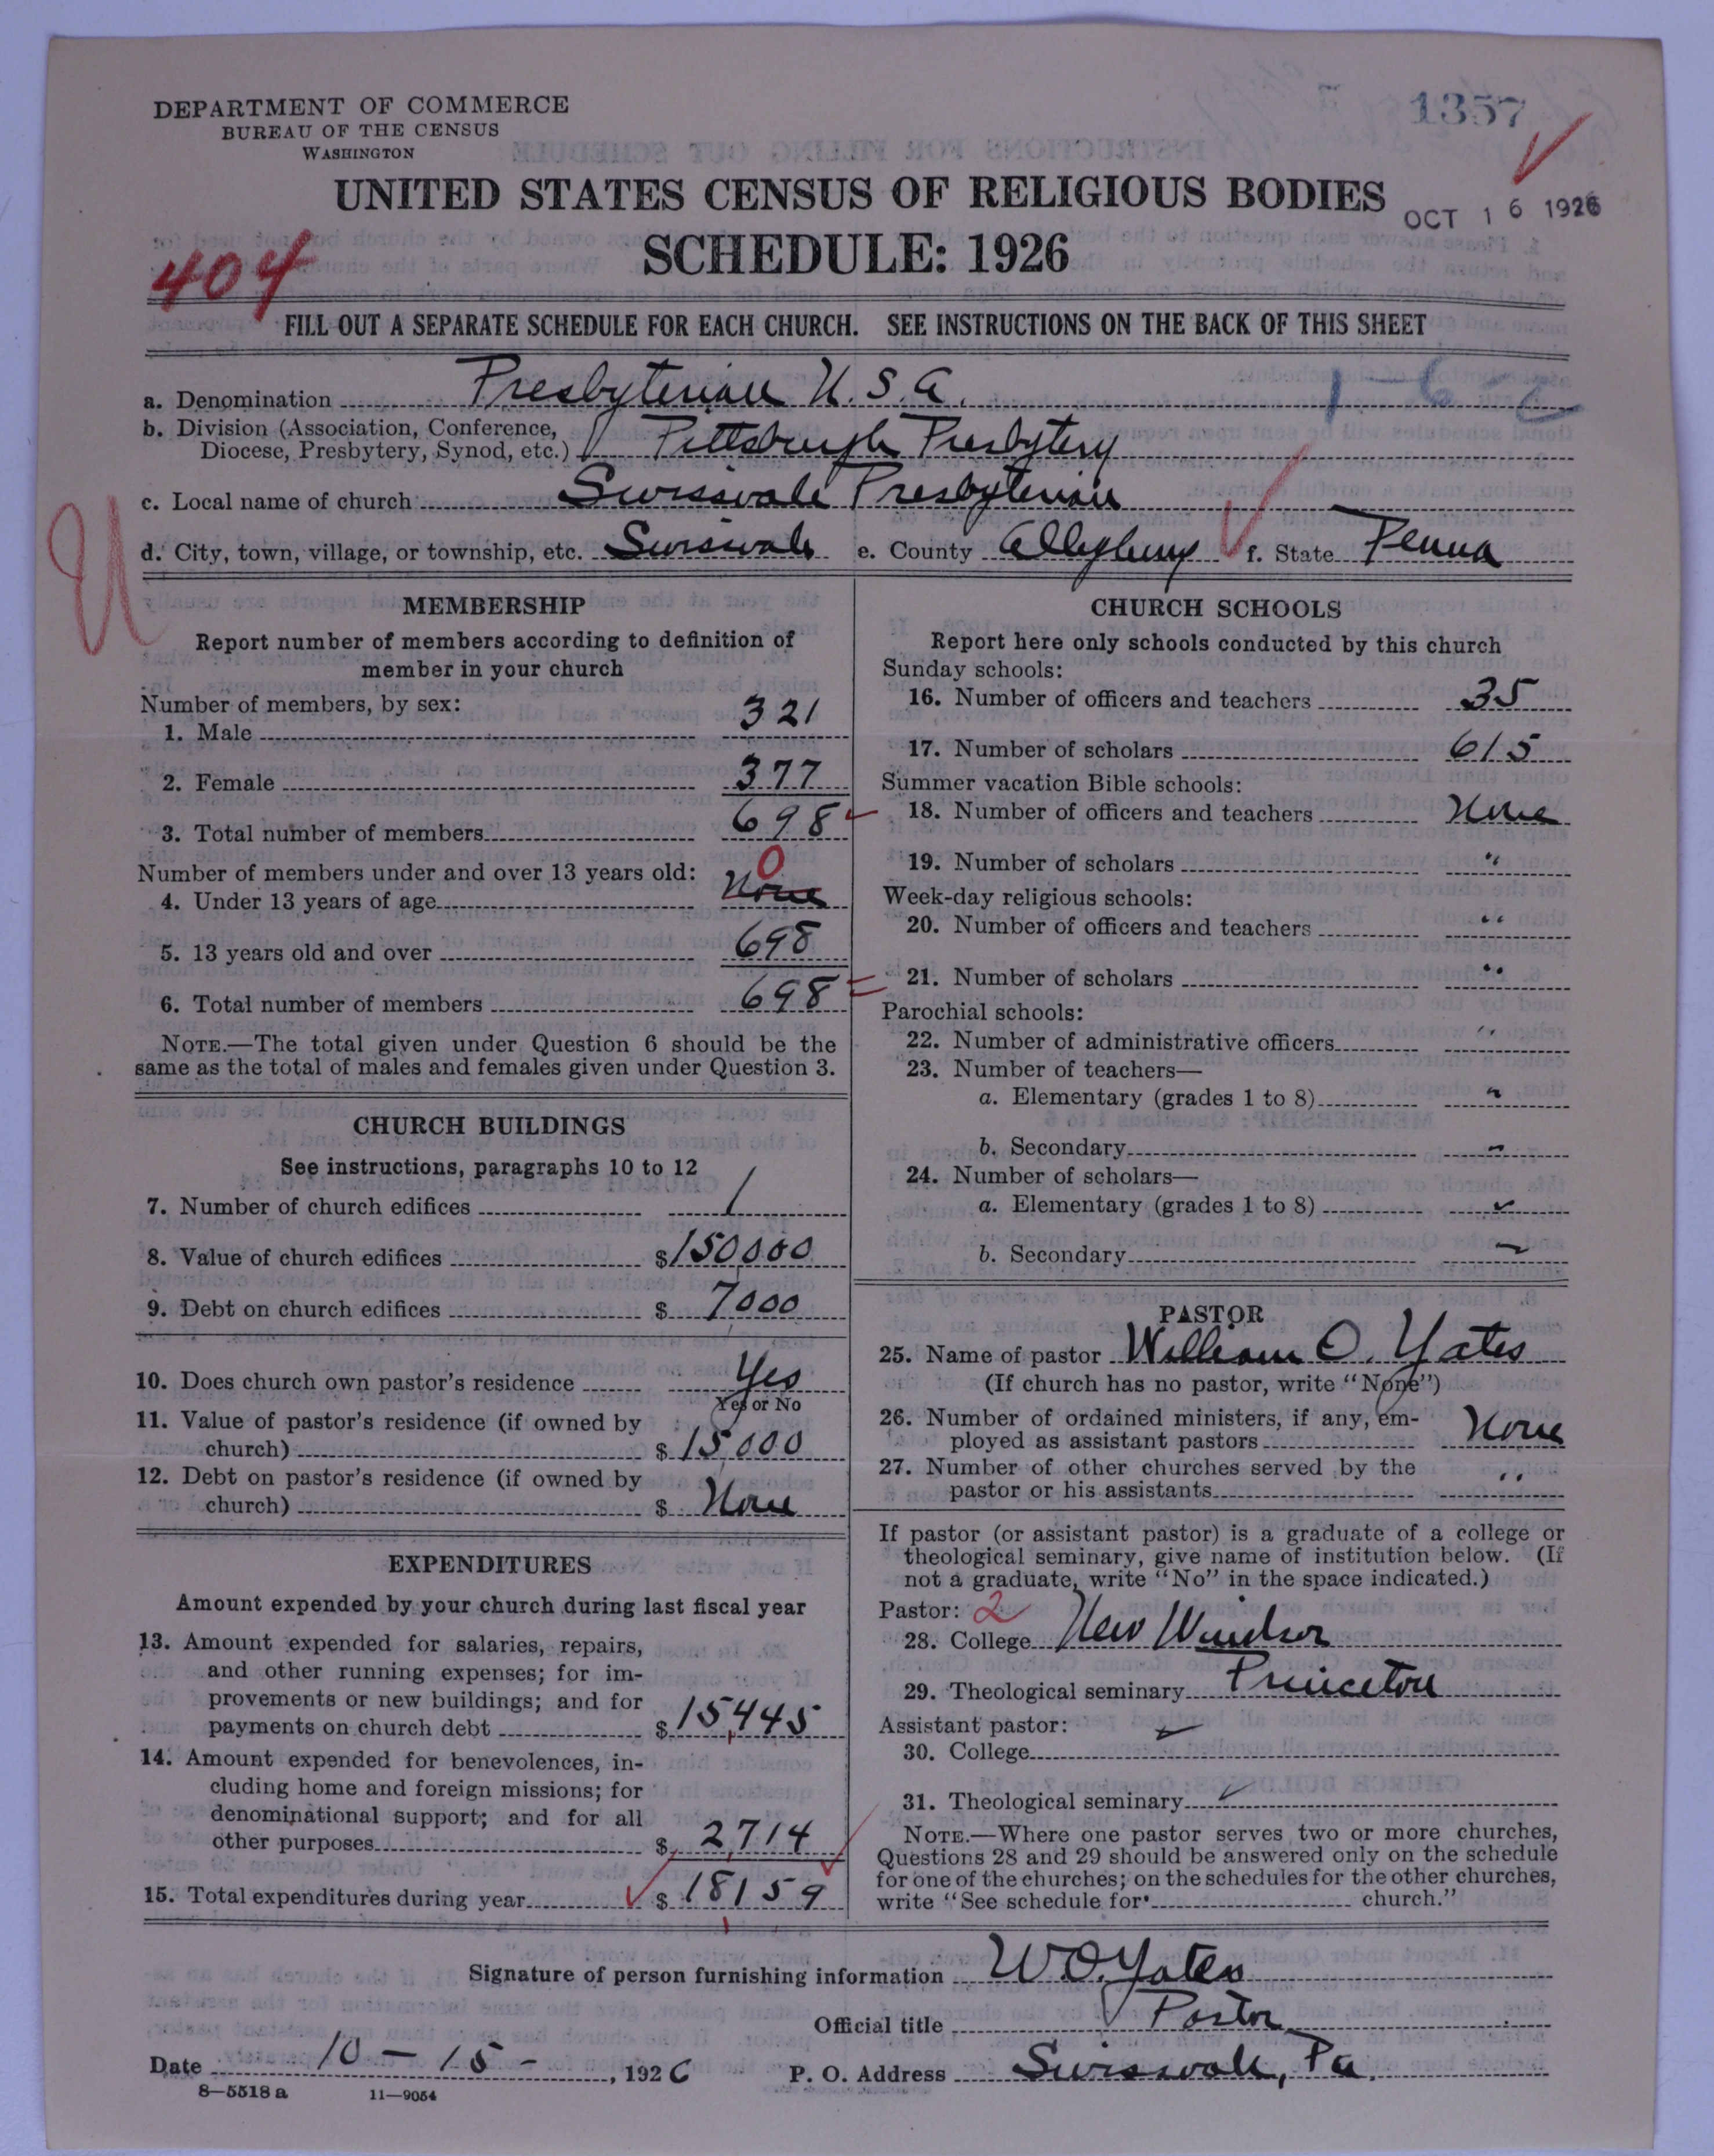 DEPARTMENT OF COMMERCE
BUREAU OF THE CENSUS
WASHINGTON
1357
UNITED STATES CENSUS OF RELIGIOUS BODIES
OCT 16 1926
SCHEDULE: 1926
404
FILL OUT A SEPARATE SCHEDULE FOR EACH CHURCH. SEE INSTRUCTIONS ON THE BACK OF THIS SHEET
a. Denomination Presbyterian U.S.A.
1-6-
b. Division (Association, Conference,
Diocese, Presbytery, Synod, etc.) Pittsburgh Presbytery
c. Local name of church Swissvale Presbyterian
d. City, town, village, or township, etc. Swissvale e. County Allegheny f. State Penna
U
MEMBERSHIP
Report number of members according to definition of
member in your church
Number of members, by sex:
1. Male 321
2. Female 377
3. Total number of members 698
Number of members under and over 13 years old:
0
4. Under 13 years of age None
5. 13 years old and over 698
6. Total number of members 698
NOTE.—The total given under Question 6 should be the
same as the total of males and females given under Question 3.
CHURCH BUILDINGS
See instructions, paragraphs 10 to 12
7. Number of church edifices 1
8. Value of church edifices $150000
9. Debt on church edifices $ 7000
10. Does church own pastor's residence Yes
Yes or No
11. Value of pastor's residence (if owned by
church) $ 15,000
12. Debt on pastor's residence (if owned by
church) $ None
EXPENDITURES
Amount expended by your church during last fiscal year
13. Amount expended for salaries, repairs,
and other running expenses; for im-
provements or new buildings; and for
payments on church debt $ 15,445
14. Amount expended for benevolences, in-
cluding home and foreign missions; for
denominational support; and for all
other purposes $ 2,714
15. Total expenditures during year $ 18159
CHURCH SCHOOLS
Report here only schools conducted by this church
Sunday schools:
16. Number of officers and teachers 35
17. Number of scholars 615
Summer vacation Bible schools:
18. Number of officers and teachers None
19. Number of scholars "
Week-day religious schools:
20. Number of officers and teachers "
21. Number of scholars "
Parochial schools:
22. Number of administrative officers "
23. Number of teachers—
a. Elementary (grades 1 to 8) "
b. Secondary "
24. Number of scholars—
a. Elementary (grades 1 to 8)
b. Secondary
PASTOR
25. Name of pastor William O. Yates
(If church has no pastor, write "None")
26. Number of ordained ministers, if any, em-
ployed as assistant pastors None
27. Number of other churches served by the
pastor or his assistants "
If pastor (or assistant pastor) is a graduate of a college or
theological seminary, give name of institution below. (If
not a graduate, write "No" in the space indicated.)
Pastor: 2
28. College New Windsor
29. Theological seminary Princeton
Assistant pastor:
30. College
31. Theological seminary
NOTE.—Where one pastor serves two or more churches,
Questions 28 and 29 should be answered only on the schedule
for one of the churches; on the schedules for the other churches,
write "See schedule for church."
Signature of person furnishing information W.O. Yates
Official title Pastor
Date 10-15-, 1926 P. O. Address Swissvale, Pa.
8—5518 a 11—9054